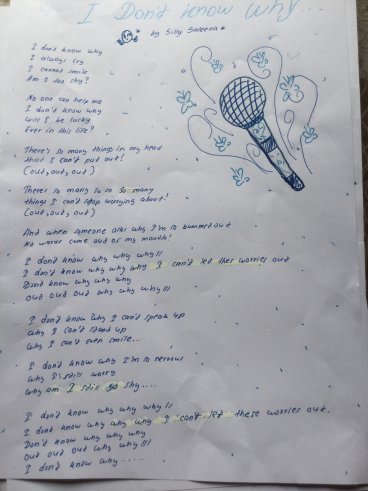 I Don't know why...
by Silly Saleena
I don't know why
I always cry
I cannot smile
Am I too shy?
No one can help me
I don't know why
Will I be lucky
Ever in this life?
There's so many things in my head
that I can't put out!
(out, out, out)
Theres so many so so so many
things I can't stop worrying about!
(out, out, out)
And when someone asks why I'm so bummed out
No words come out of my mouth!
I don't know why why why!!
I don't know why why why why I can't let thes worries out
Don't know why why why
out out out why why why!!!
I don't know why I can't speak up
Why I can't stand up
Why I can't even smile...
I don't know why I'm so nervous
Why I still worry
Why am I still so shy....
I don't know why why why!!
I don't know why why why why I can't let these worries out.
Don't know why why why
Out out out why why why!!!
I don't know why.....